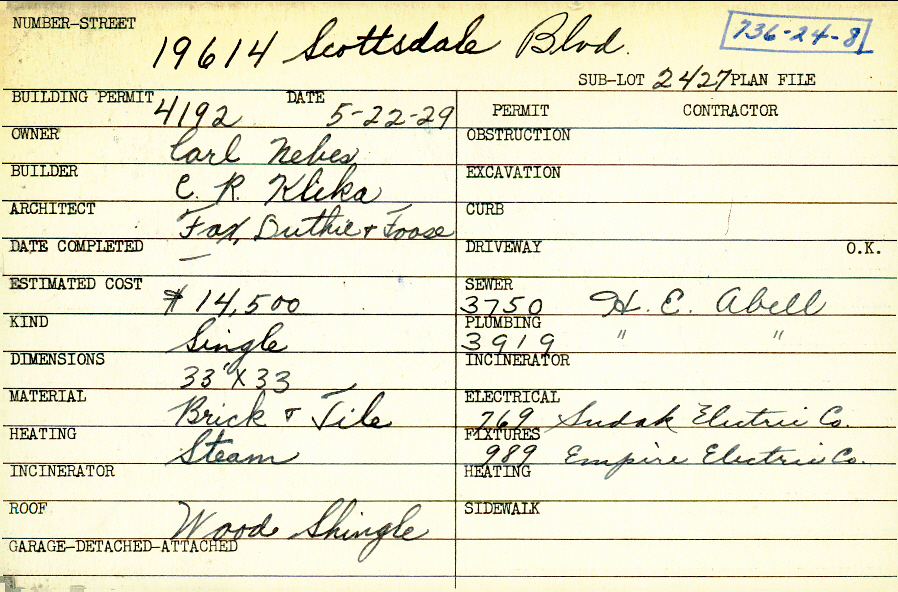 NUMBER-STREET
19614 Scottsdale Blvd.
736-24-8
SUB-LOT 2427 PLAN FILE
BUILDING PERMIT 4192 DATE 5-22-29
OWNER Carl Nebes
BUILDER C. R. Klika
ARCHITECT Fox, Duthie & Foose
DATE COMPLETED —
ESTIMATED COST $14,500
KIND Single
DIMENSIONS 33" X 33
MATERIAL Brick & Tile
HEATING Steam
INCINERATOR
ROOF Wood Shingle
GARAGE-DETACHED-ATTACHED
PERMIT CONTRACTOR
OBSTRUCTION
EXCAVATION
CURB
DRIVEWAY O.K.
SEWER 3750 H. E. Abell
PLUMBING 3919 " "
INCINERATOR
ELECTRICAL 769 Sudak Electric Co.
FIXTURES 989 Empire Electric Co.
HEATING
SIDEWALK